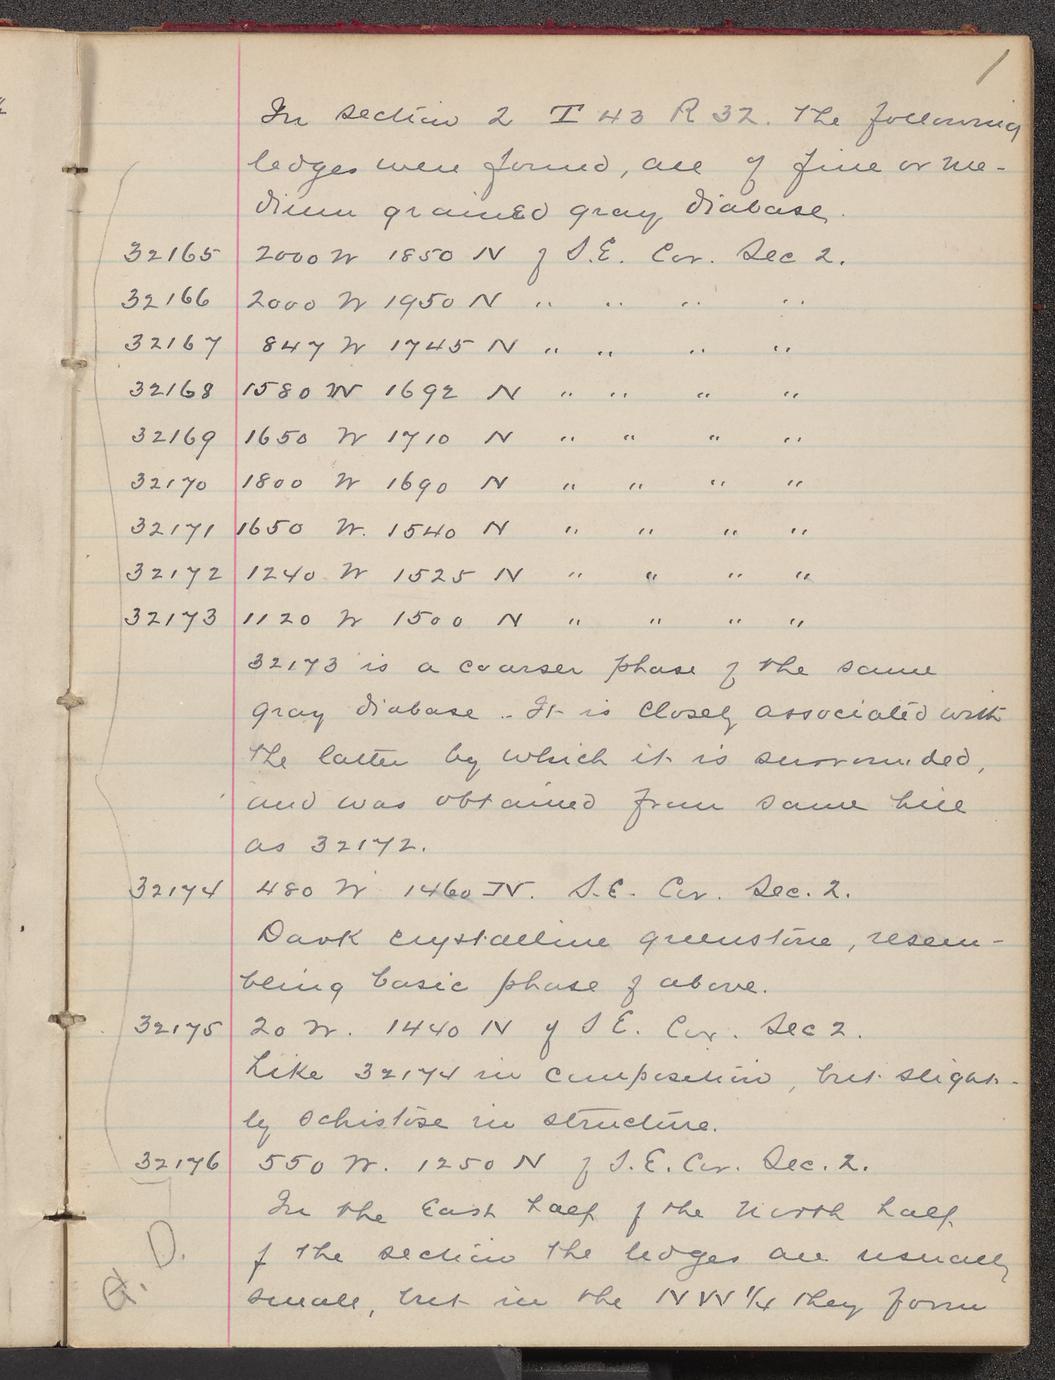 1
In section 2 T 43 R 32. The following
ledges were found, all of fine or me-
dium grained gray diabase.
32165 2000 W 1850 N of S.E. Cor. Sec 2.
32166 2000 W 1950 N " " " "
32167 847 W 1745 N " " " "
32168 1580 W 1692 N " " " "
32169 1650 W 1710 N " " " "
32170 1800 W 1690 N " " " "
32171 1650 W. 1540 N " " " "
32172 1240 W 1525 N " " " "
32173 1120 W 1500 N " " " "
32173 is a coarser phase of the same
gray diabase. It is closely associated with
the latter by which it is surrounded,
and was obtained from same hill
as 32172.
32174 480 W 1460 N. S.E. Cor. Sec. 2.
Dark crystalline greenstone, resem-
bling basic phase of above.
32175 20 W. 1440 N of S E. Cor. Sec 2.
Like 32174 in composition, but slight-
ly schistose in structure.
32176 550 W. 1250 N of S.E. Cor. Sec. 2.
In the East half of the North half
of the section the ledges are usually
small, but in the N W 1/4 they form
Q. D.